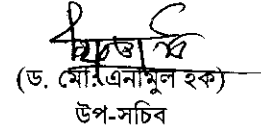 (ড. মোঃ এনামুল হক)
উপ-সচিব